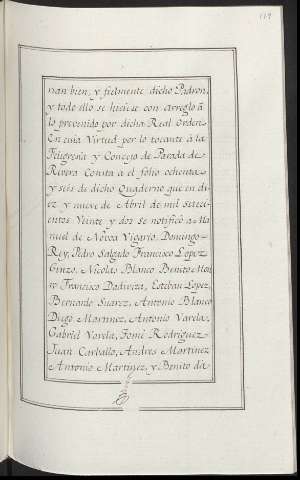 117
nan bien, y fielmente dicho Padron,
y todo ello se hiciese con arreglo á
lo prevenido por dicha Real Orden
En cuia Virtud por lo tocante á la
Feligresia y Concejo de Parada de
Rivera Consta a el folio ochenta
y seis de dicho Quaderno que en di-
ez y nueve de Abril de mil setecí-
entos Veinte y dos se notificó a Ma-
nuel de Nóvoa Vigario, Domingo
Rey, Pedro Salgado Francisco Lopez
Ginzo, Nicolas Blanco Benito Mou-
ro Francisco Dadreiza, Esteban Lopez,
Bernardo Suarez, Antonio Blanco
Diego Martinez, Antonio Varela,
Gabriel Varela, Tomé Rodriguez
Juan Carballo, Andres Martinez
Antonio Martinez, y Benito dit